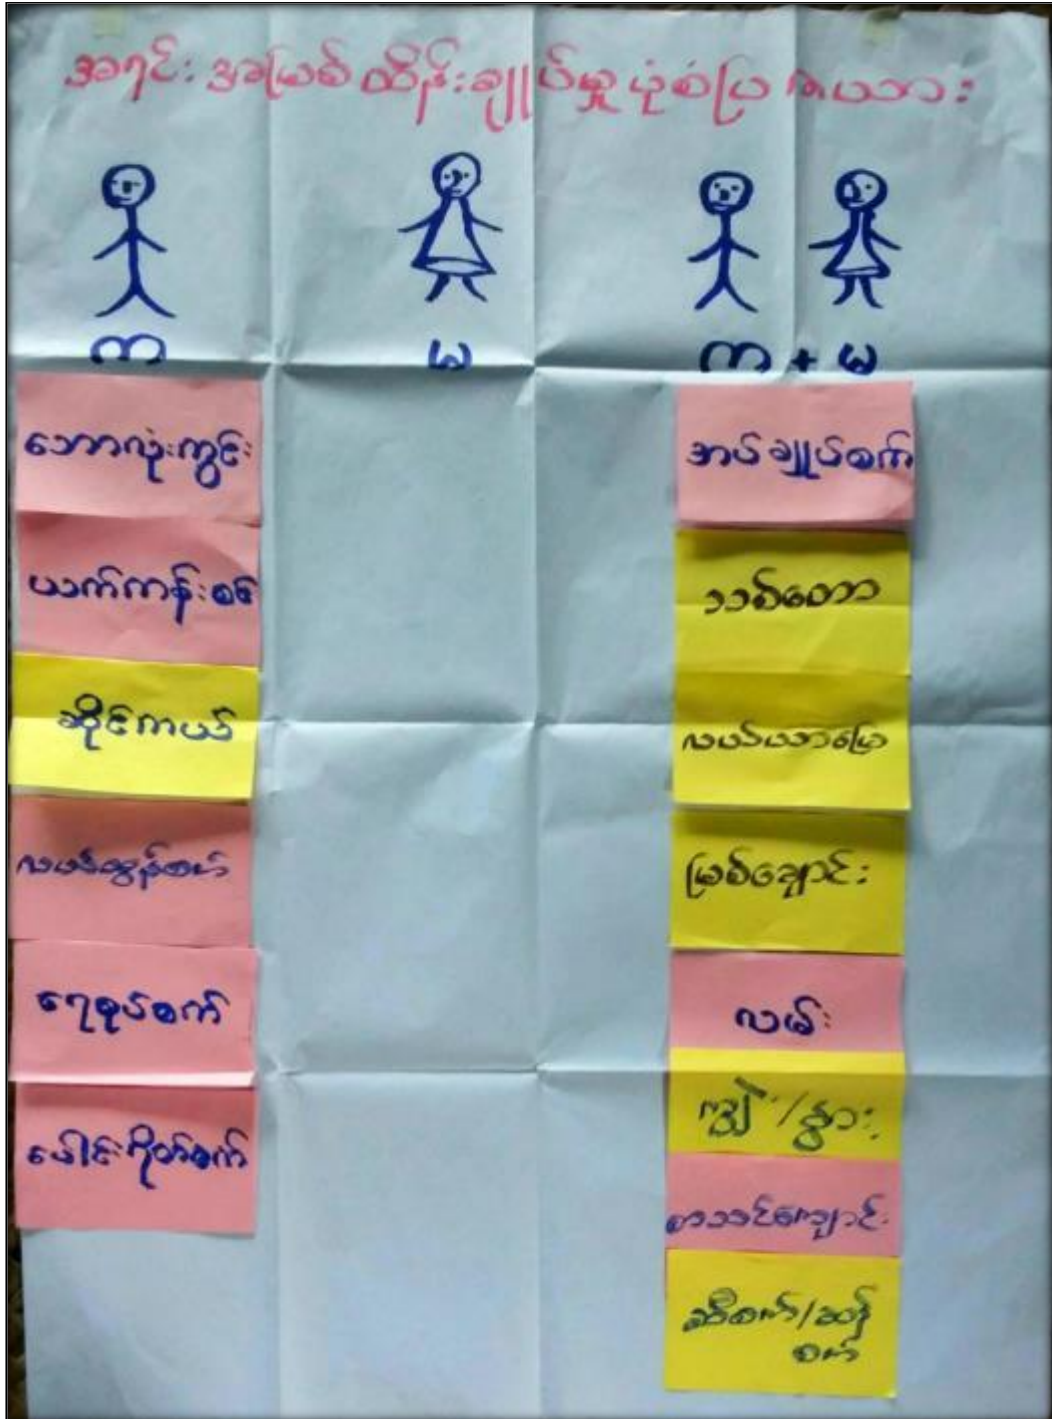 အရင်းအမြစ်ထိန်းချုပ်မှုပုံစံပြဇယား
က
မ
က + မ
ဘောလုံးကွင်း
ယက်ကန်းစင်
ဆိုင်ကယ်
လယ်ထွန်စက်
ရေစုပ်စက်
ခေါင်းဂိုတ်စက်
အပ်ချုပ်စက်
သစ်တော
လယ်ယာမြေ
မြစ်ချောင်း
လမ်း
ကျွဲ/နွား
စာသင်ကျောင်း
ဆီစက်/ဆန်
စက်